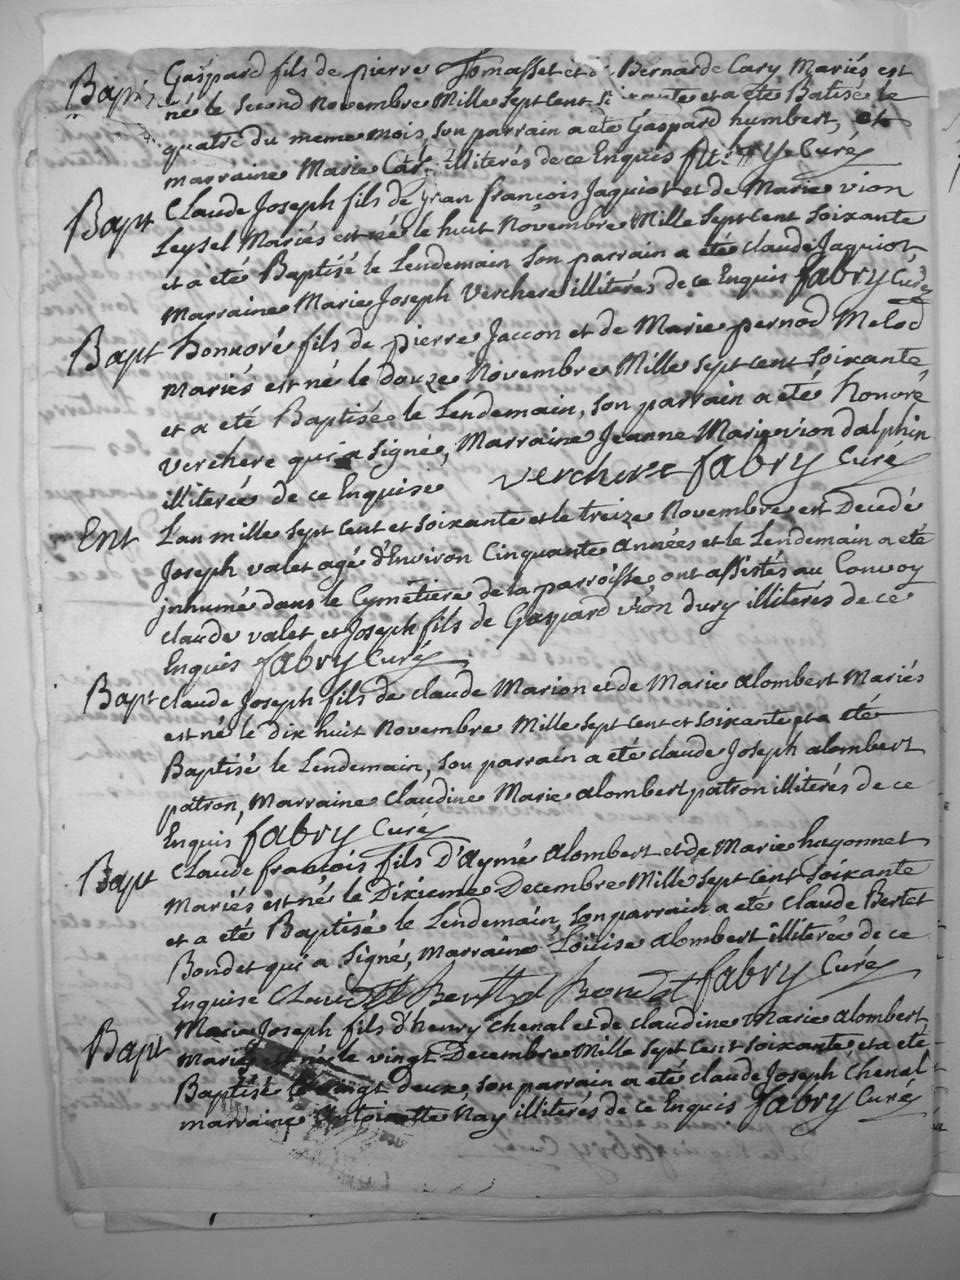 Bapt Gaspard fils de pierre Tomasset et d Bernarde Cary Mariés est
né le second Novembre Mille Sept Cent et a eté Batisé le
quatre du meme mois, son parrain a eté Gaspard humbert, et
marraine Marie Cary illiterés de ce Enquis fabry Curé
Bapt Claude Joseph fils de Jean françois Jaquiot et de Marie vion
Leysel Mariés est né le huit Novembre Mille Sept Cent Soixante
et a eté Baptisé le Lendemain Son parrain a eté claude Jaquiot
Marraine Marie Joseph Verchere illiterés de ce Enquis fabry Curé
Bapt honnoré fils de pierre Jaccon et de Marie pernod Melod
mariés est né le douze Novembre Mille sept cent soixante
et a eté Baptisée le Lendemain, son parrain a eté honoré
verchere qui a signé, Marraine Jeanne Marie vion dalphin
illiterée de ce Enquise verchere fabry Curé
Ent L'an mille sept cent et soixante et le treize Novembre est Decedé
Joseph valet agé d'Environ Cinquante Années et le Lendemain a eté
jnhumé dans le Cymétiere de la parroisse ont assistés au Convoy
claude valet et Joseph fils de Gaspard vion dury illiterés de ce
Enquis fabry Curé
Bapt claude Joseph fils de claude Marion et de Marie alombert Mariés
est né le dix huit Novembre Mille sept cent et soixante et a eté
Baptisé le Lendemain, son parrain a eté claude Joseph alombert
patron, Marraine Claudine Marie alombert patron illiterés de ce
Enquis fabry Curé
Bapt Claude francois fils D'Aymé alombert et de Marie hugonnet
Mariés est né le Dixieme Decembre Mille Sept Cent Soixante
et a eté Baptisé le Lendemain, son parrain a eté Claude Bertet
Bondet qui a Signé, Marraine Loüise alombert illiterée de ce
Enquise Bondet fabry Curé
Bapt Marie Joseph fils d'henry Chenal et de claudine Marie alombert
Mariés est né le vingt Decembre Mille sept Cent soixante et a eté
Baptisé le vingt deux, son parrain a eté claude Joseph Chenal
marraine Antoinette Nay illiterés de ce Enquis fabry Curé